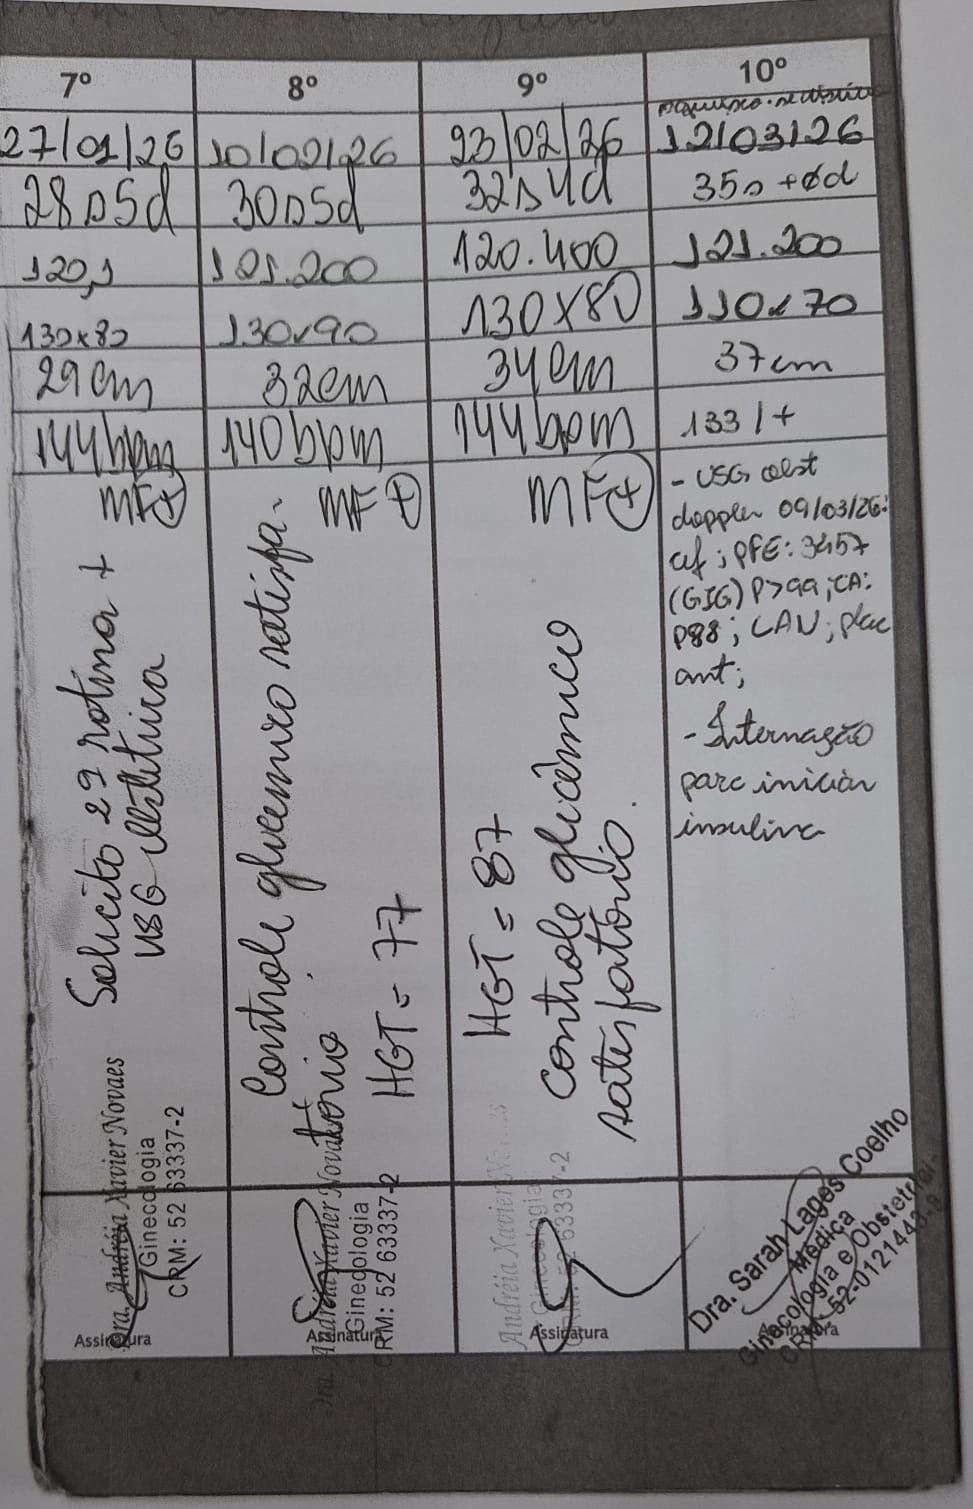 7º
8º
9º
10º
27/01/26
10/02/26
23/02/26
12/03/26
28s5d
30s5d
32s4d
35s+ød
120,1
121.200
120.400
121.200
130x80
130x90
130x80
110x70
29cm
32cm
34cm
37cm
144bpm
140bpm
144bpm
133 1+
MF+
Solicito 2ª rotina +
USG obstétrica
MF +
Controle glicemico satisfa-
tório
HGT = 77
MF+
HGT = 87
Controle glicêmico
satisfatório.
- USG obst
doppler 09/03/26:
cef; PFE: 3457
(GIG) P>99; CA:
P88; LAN; plac
ant;
- Internação
para iniciar
insulina
Dra. Andréia Xavier Novaes
Ginecologia
CRM: 52 63337-2
Assinatura
Dra. Andréia Xavier Novaes
Ginecologia
CRM: 52 63337-2
Assinatura
Andréia Xavier
Ginecologia
CRM: 52 63337-2
Assinatura
Dra. Sarah Lages Coelho
Médica
Ginecologia e Obstetrícia
Assinatura